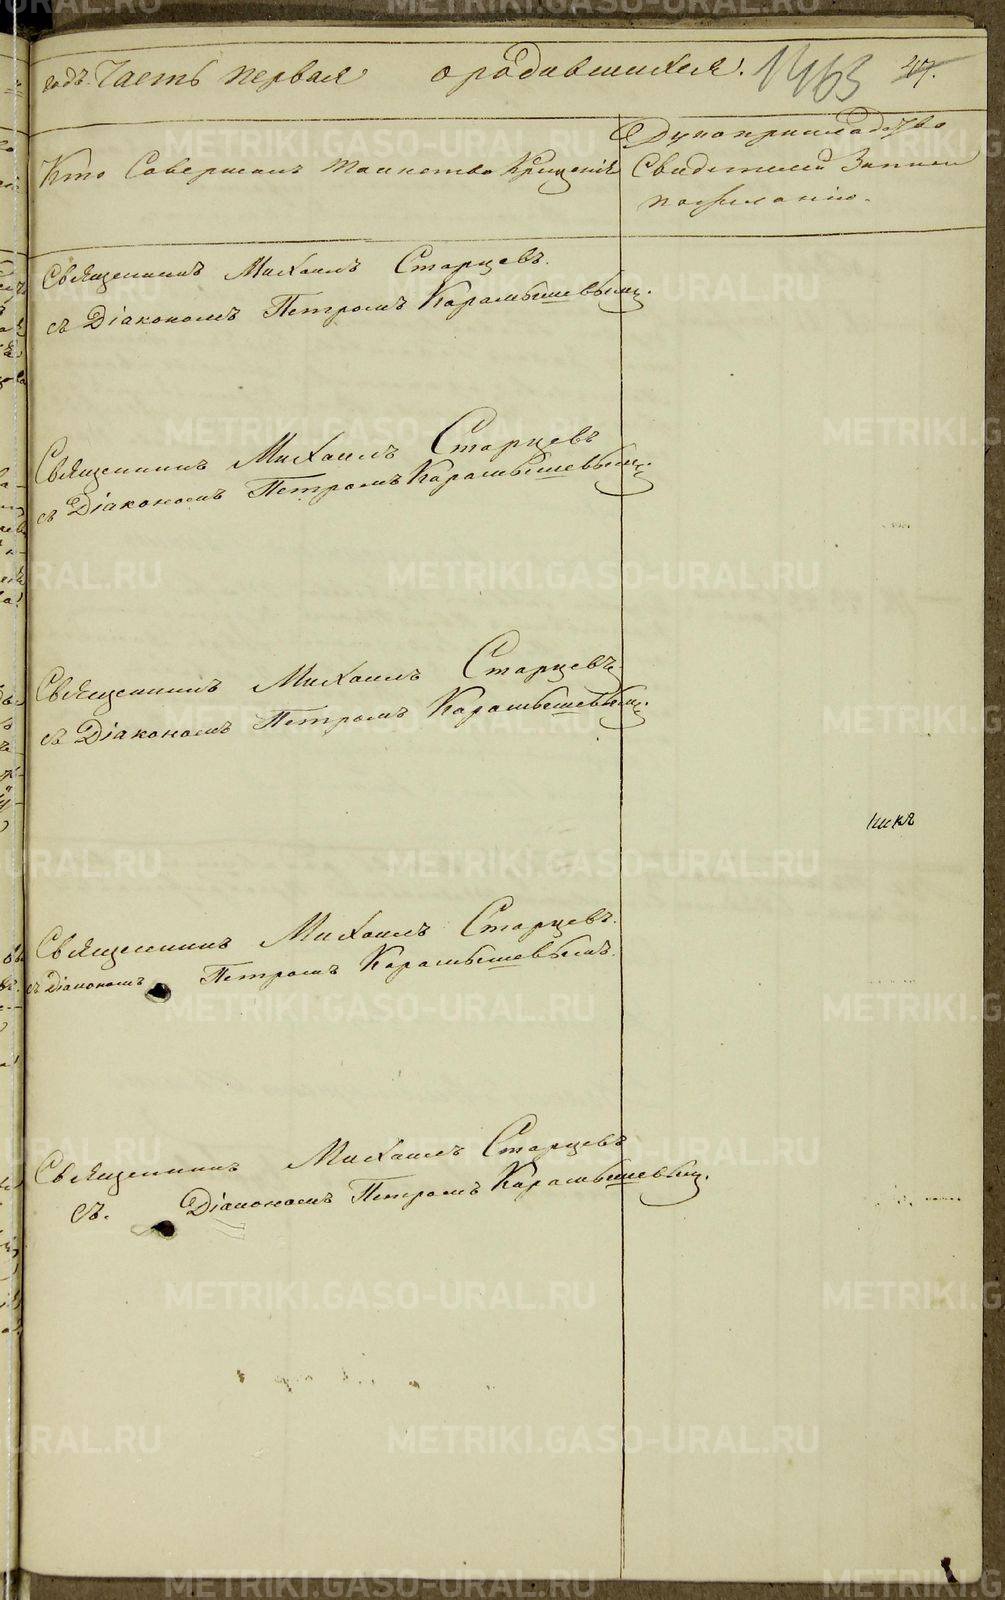 годъ. Часть первая о родившихся. 1463 47.
Кто Совершалъ таинство Крещенія
Рукоприкладство
Свидетелей Записи
по желанію.
Священникъ Михаилъ Старцевъ.
съ Діакономъ Петромъ Карамышевымъ.
Священникъ Михаилъ Старцевъ
съ Діакономъ Петромъ Карамышевымъ.
Священникъ Михаилъ Старцевъ
съ Діакономъ Петромъ Карамышевымъ.
Священникъ Михаилъ Старцевъ.
съ Діакономъ Петромъ Карамышевымъ.
Священникъ Михаилъ Старцевъ
съ. Діакономъ Петромъ Карамышевымъ.
METRIKI.GASO-URAL.RU